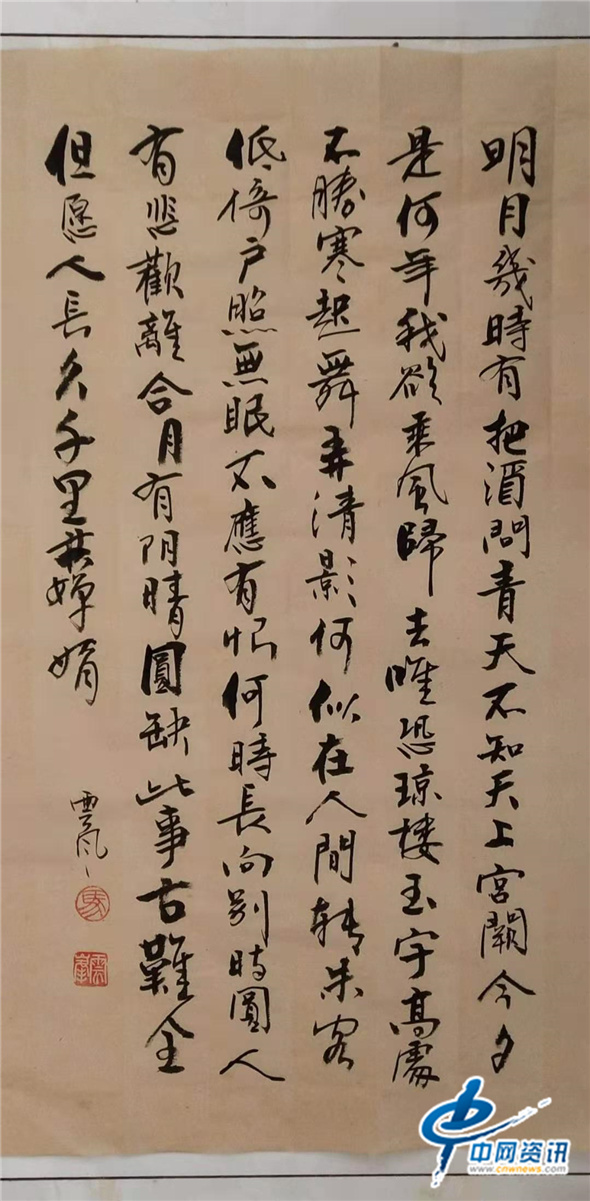 明月幾時有把酒問青天不知天上宮闕今夕
是何年我欲乘風歸去唯恐琼樓玉宇高處
不勝寒起舞弄清影何似在人間轉朱客
低倚户照無眠不應有恨何時長向别時圓人
有悲歡離合月有阴晴圓缺此事古難全
但愿人長久千里共嬋娟
雲风
中网资讯
www.cnwnews.com